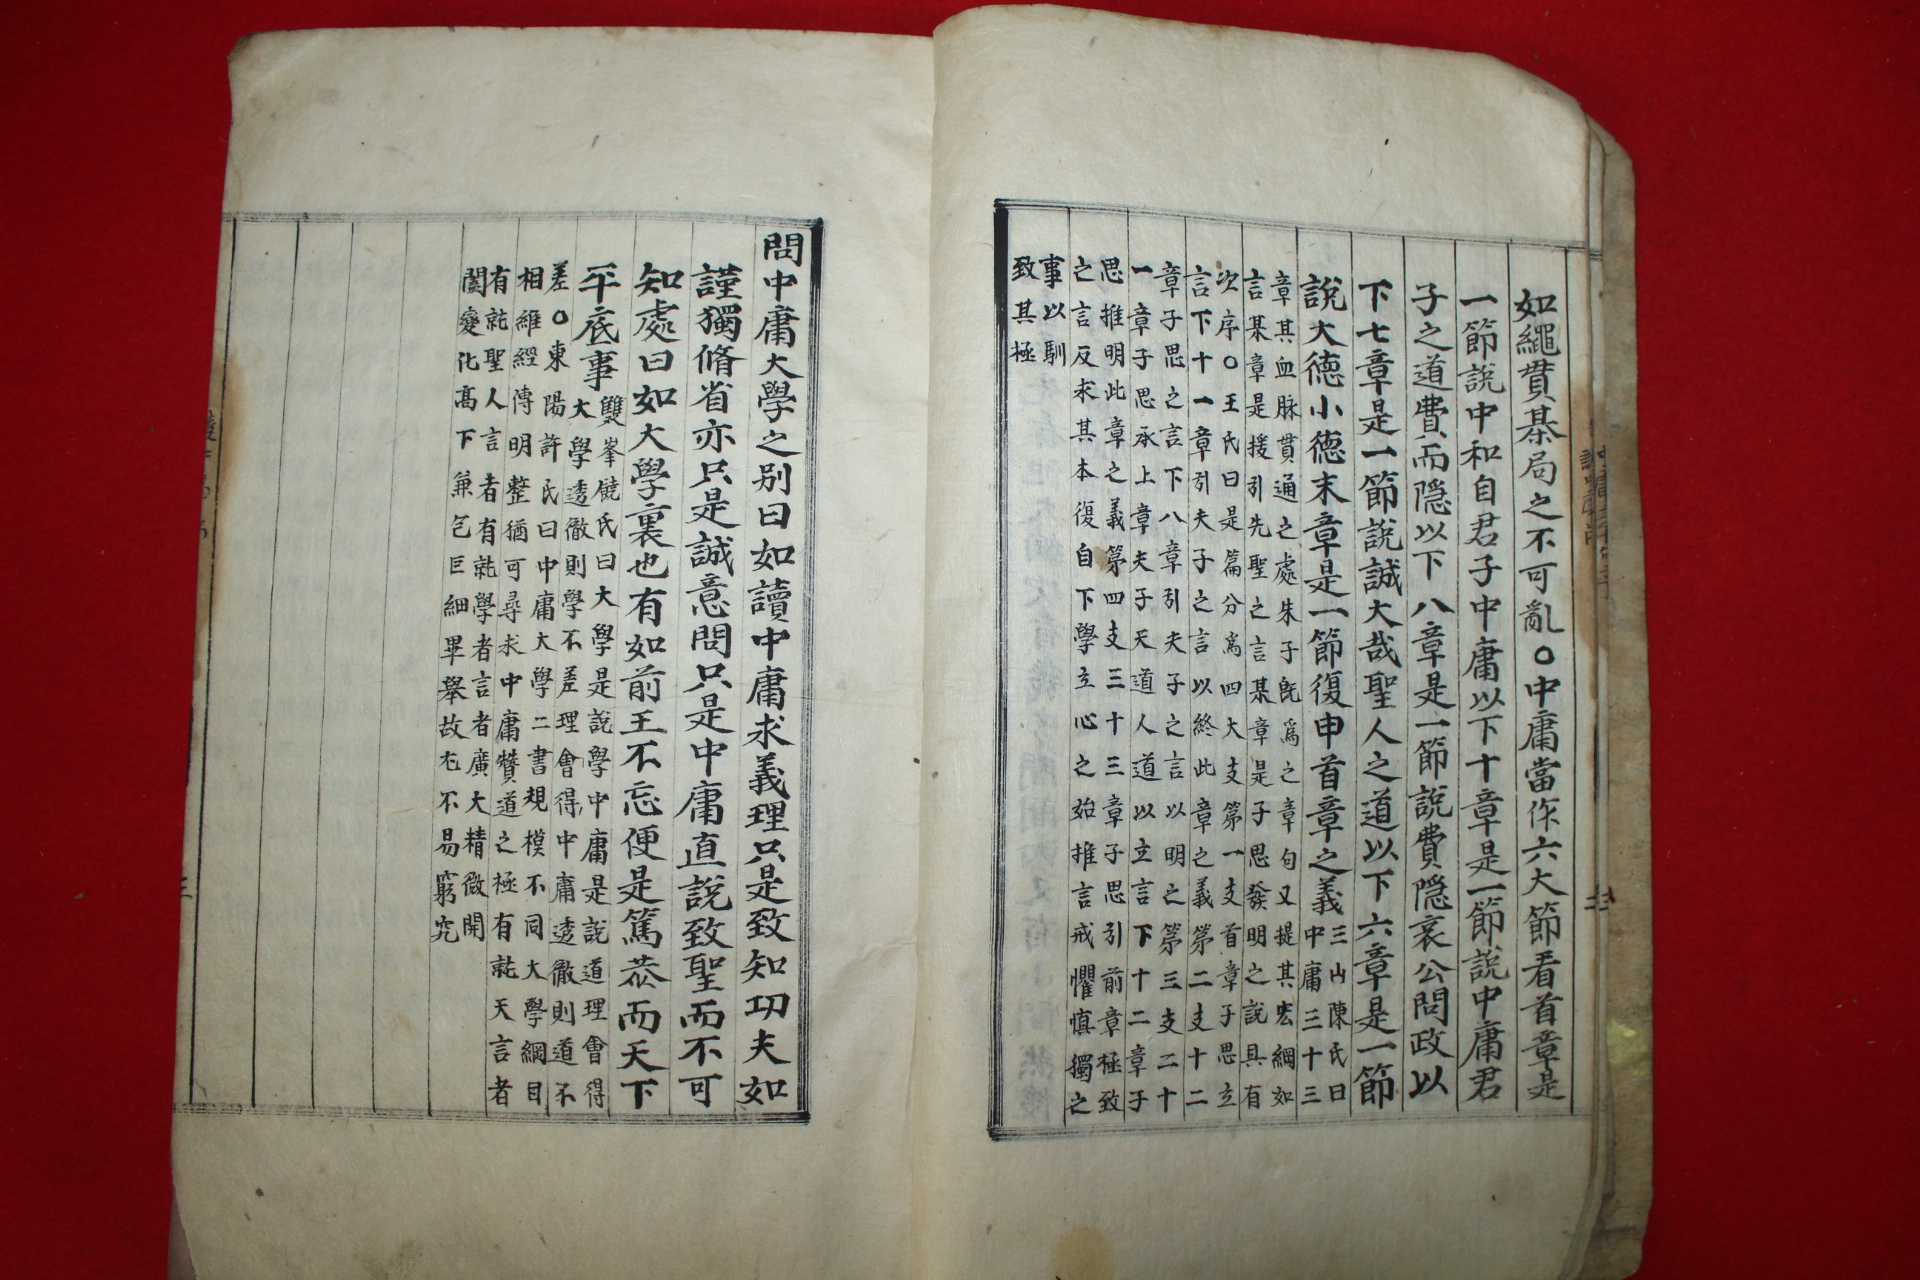 如繩貫棊局之不可亂○中庸當作六大節看首章是
一節說中和自君子中庸以下十章是一節說中庸君
子之道費而隱以下八章是一節說費隱哀公問政以
下七章是一節說誠大哉聖人之道以下六章是一節
說大德小德末章是一節復申首章之義三山陳氏曰
中庸三十三
章其血脉貫通之處朱子旣爲之章句又提其宏綱如
言某章是援引先聖之言某章是子思發明之說具有
次序○王氏曰是篇分爲四大支第一支首章子思立
言下十一章引夫子之言以終此章之義第二支十二
章子思之言下八章引夫子之言以明之第三支二十
一章子思承上章夫子天道人道以立言下十二章子
思推明此章之義第四支三十三章子思引前章極致
之言反求其本復自下學立心之始推言戒懼愼獨之
事以馴
致其極
問中庸大學之别曰如讀中庸求義理只是致知功夫如
謹獨脩省亦只是誠意問只是中庸直說致聖而不可
知處曰如大學裏也有如前王不忘便是篤恭而天下
平底事雙峯饒氏曰大學是說學中庸是說道理會得
大學透徹則學不差理會得中庸透徹則道不
差○東陽許氏曰中庸大學二書規模不同大學綱目
相維經傳明整猶可尋求中庸贊道之極有就天言者
有就聖人言者有就學者言者廣大精微開
闔變化高下兼包巨細畢舉故尤不易窮究